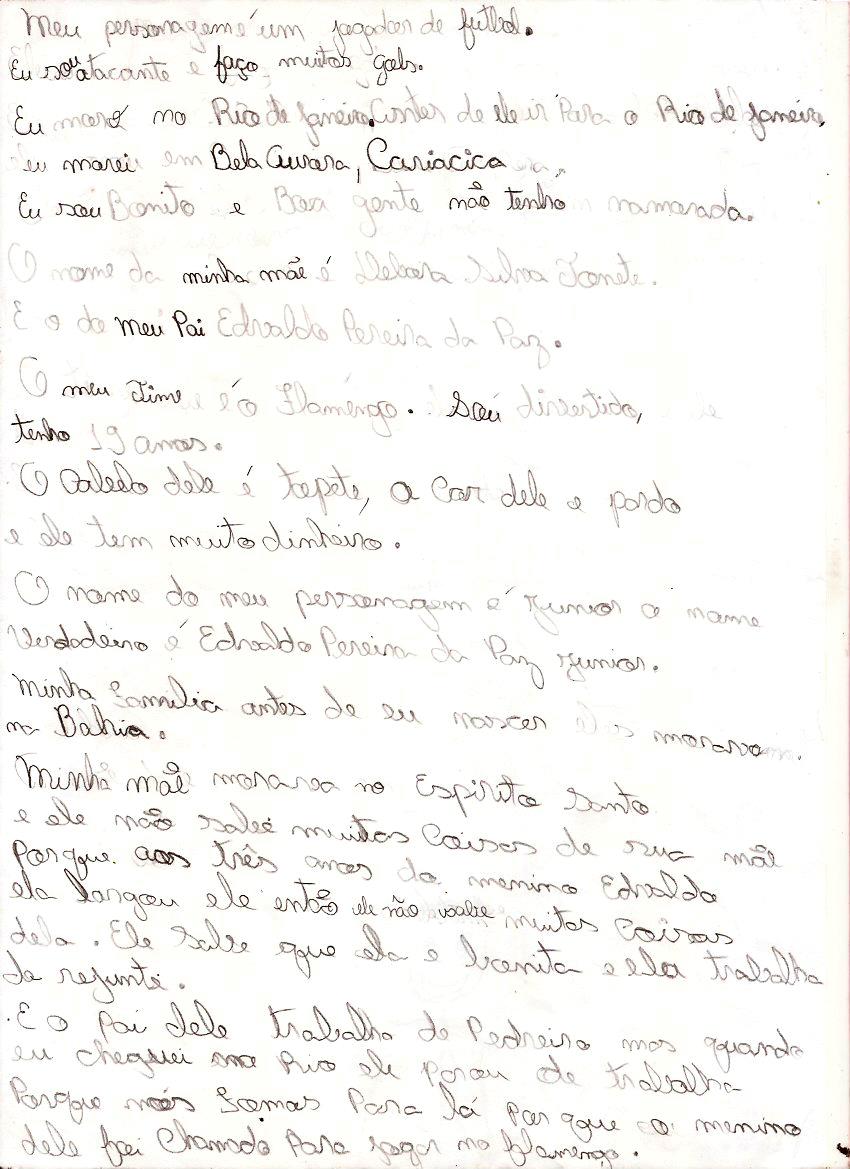 Meu personagem é um jogador de futbol.
Eu sou atacante e faço muitos gols.
Eu moro no Rio de Janeiro. Antes de ele ir Para o Rio de Janeiro,
eu morei em Bela Aurora, Cariacica
Eu sou Bonito e Boa gente não tenho namorada.
O nome da minha mãe é Debora Silva Tonete.
E o do meu Pai Edvaldo Pereira da Paz.
O meu Time é o Flamengo. Sou divertido,
tenho 19 anos.
O Cabelo dele é tapete, a Cor dele e pardo
e ele tem muito dinheiro.
O nome do meu personagem é Junior o nome
Verdadeiro é Edvaldo Pereira da Paz Junior.
Minha Familia antes de eu nascer eles moravam
na Bahia.
Minha mãe morava no Espirito Santo
e ele não sabe muitas Coisas de sua mãe
Porque aos três anos do menino Edvaldo
ela largou ele então ele não sabe muitas Coisas
dela. Ele sabe que ela e bonita e ela trabalha
de rejunte.
E o Pai dele trabalha de Pedreiro mas quando
eu cheguei no Rio ele parou de trabalha
Porque nós Fomos Para lá por que o menino
dele foi Chamado Para jogar no flamengo.